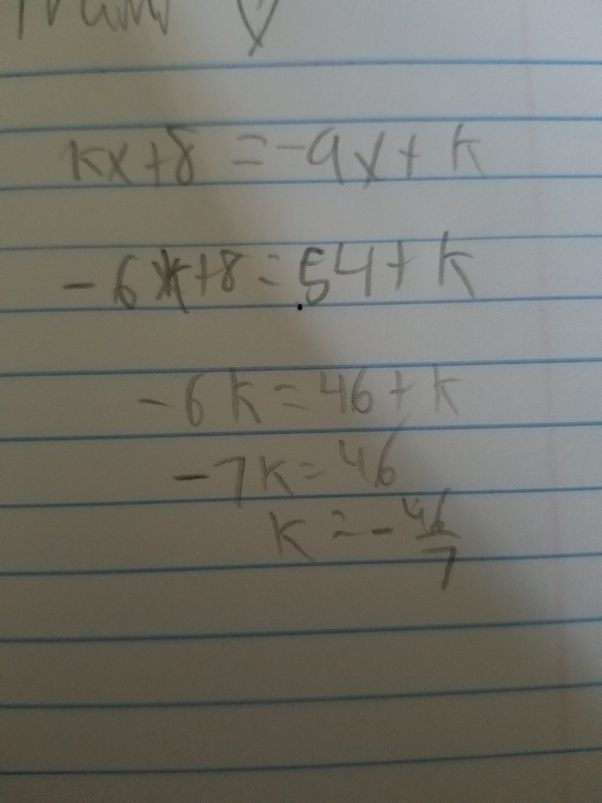 kx+8 = -9x + k
-6k+8 = 54 + k
-6k = 46 + k
-7k = 46
k = -46/7